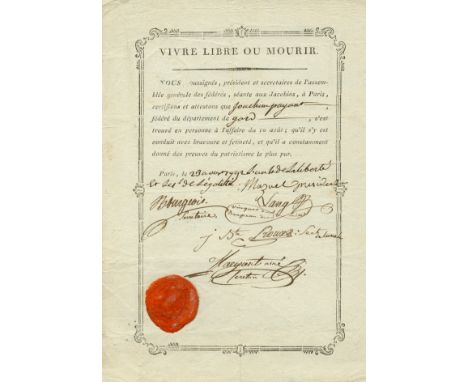 VIVRE LIBRE OU MOURIR.
NOUS soussignés, président et secretaires de l'assem-
blée générale des fédérés, séante aux Jacobins, à Paris,
certifions et attestons que joachim payant
fédéré du département de gard, s'est
trouvé en personne à l'affaire du 10 août; qu'il s'y est
conduit avec bravoure et fermeté, et qu'il a constamment
donné des preuves du patriotisme le plus pur.
Paris, le 23 aout 1792 de la liberté
et de l'égalité
Bourgeois
Secretaire
j Bte